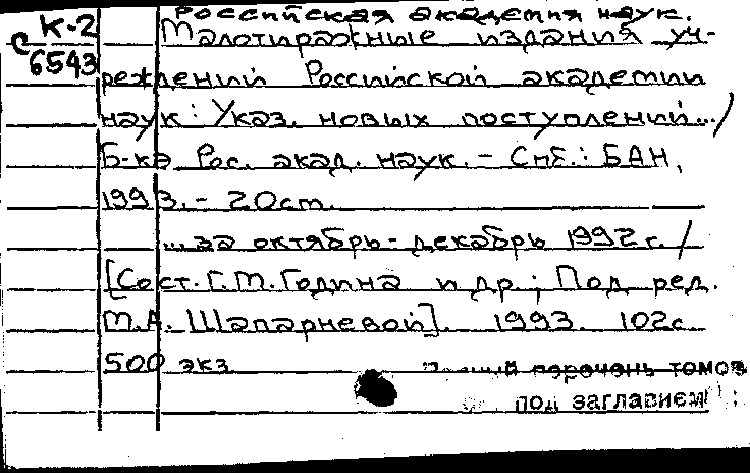 Российская академия наук.
К-2
С 6543
Малотиражные издания уч-
реждений Российской академии
наук : Указ. новых поступлений... /
Б-ка Рос. акад. наук. - Спб.: БАН,
1993. - 20 см.
... за октябрь - декабрь 1992 г. /
[Сост. Г.М. Година и др.; Под ред.
М.А. Шапарневой]. 1993. 102 с.
500 экз
перечень томов
под заглавием